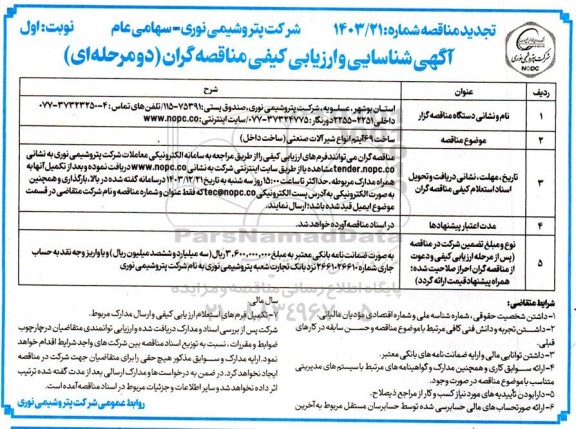 تجدید مناقصه شماره: ۱۴۰۳/۲۱
شرکت پتروشیمی نوری - سهامی عام
نوبت: اول
آگهی شناسایی و ارزیابی کیفی مناقصه گران (دو مرحله‌ای)
شرکت پتروشیمی نوری
NOPC
ردیف
عنوان
شرح
۱
نام و نشانی دستگاه مناقصه گزار
استان بوشهر، عسلویه، شرکت پتروشیمی نوری، صندوق پستی: ۷۵۳۹۱-۱۱۵/ تلفن های تماس: ۴-۳۷۳۲۳۲۵۰-۰۷۷
داخلی ۲۲۵۱-۲۲۵۵ دورنگار: ۳۷۳۲۴۷۷۵-۰۷۷/ سایت اینترنتی: www.nopc.co
۲
موضوع مناقصه
ساخت ۶۹ آیتم انواع شیرآلات صنعتی (ساخت داخل)
۳
تاریخ، مهلت، نشانی دریافت و تحویل
اسناد استعلام کیفی مناقصه گران
مناقصه گران می توانند فرم های ارزیابی کیفی را از طریق مراجعه به سامانه الکترونیکی معاملات شرکت پتروشیمی نوری به نشانی
tender.nopc.co مشاهده یا از طریق سایت اینترنتی شرکت به نشانی www.nopc.co دریافت نموده و بعد از تکمیل آنها به
همراه مدارک مربوطه، حداکثر تا ساعت ۱۵:۰۰ روز سه شنبه به تاریخ ۱۴۰۳/۱۲/۲۱ در سامانه گفته شده در بالا، بارگذاری و همچنین
به صورت الکترونیکی به آدرس پست الکترونیکی tec@nopc.co که فقط عنوان و شماره مناقصه و نام شرکت متقاضی در قسمت
موضوع ایمیل قید شده باشد؛ ارسال نمایند.
۴
مدت اعتبار پیشنهادها
در اسناد مناقصه آورده خواهد شد.
۵
نوع و مبلغ تضمین شرکت در مناقصه
(پس از مرحله ارزیابی کیفی و دعوت
از مناقصه گران احراز صلاحیت شده؛
همراه پیشنهاد قیمت ارائه گردد)
به صورت ضمانت نامه بانکی معتبر به مبلغ ۳,۶۰۰,۰۰۰,۰۰۰ ریال (سه میلیارد و ششصد میلیون ریال) و یا واریز وجه نقد به حساب
جاری شماره ۲۶۶۱۰۲۶۶۱۰ نزد بانک تجارت شعبه پتروشیمی نوری به نام شرکت پتروشیمی نوری
شرایط متقاضی:
۱- داشتن شخصیت حقوقی، شماره شناسه ملی و شماره اقتصادی مؤدیان مالیاتی.
۲- داشتن تجربه و دانش فنی کافی مرتبط با موضوع مناقصه و حسن سابقه در کارهای
قبلی.
۳- داشتن توانایی مالی و ارایه ضمانت نامه های بانکی معتبر.
۴- ارائه سوابق کاری و همچنین مدارک و گواهینامه های مرتبط با سیستم های مدیریتی
متناسب با موضوع مناقصه در صورت وجود.
۵- دارا بودن تأییدیه های مورد نیاز کسب و کار از مراجع ذیصلاح.
۶- ارائه صورت حساب های مالی حسابرسی شده توسط حسابرسان مستقل مربوط به آخرین
سال مالی
۷- تکمیل فرم های استعلام ارزیابی کیفی و ارسال مدارک مربوط.
شرکت پس از بررسی اسناد و مدارک دریافت شده و ارزیابی توانمندی متقاضیان در چارچوب
ضوابط و مقررات، نسبت به توزیع اسناد مناقصه بین شرکت های واجد شرایط اقدام خواهد
نمود. ارایه مدارک و سوابق مذکور هیچ حقی را برای متقاضیان جهت شرکت در مناقصه
ایجاد نخواهد کرد. در ضمن به درخواست ها و مدارک ارسالی بعد از مدت گفته شده ترتیب
اثر داده نخواهد شد و سایر اطلاعات و جزئیات مربوط در اسناد مناقصه آمده است.
روابط عمومی شرکت پتروشیمی نوری
ParsNamadData
پایگاه اطلاع رسانی مناقصه و مزایده